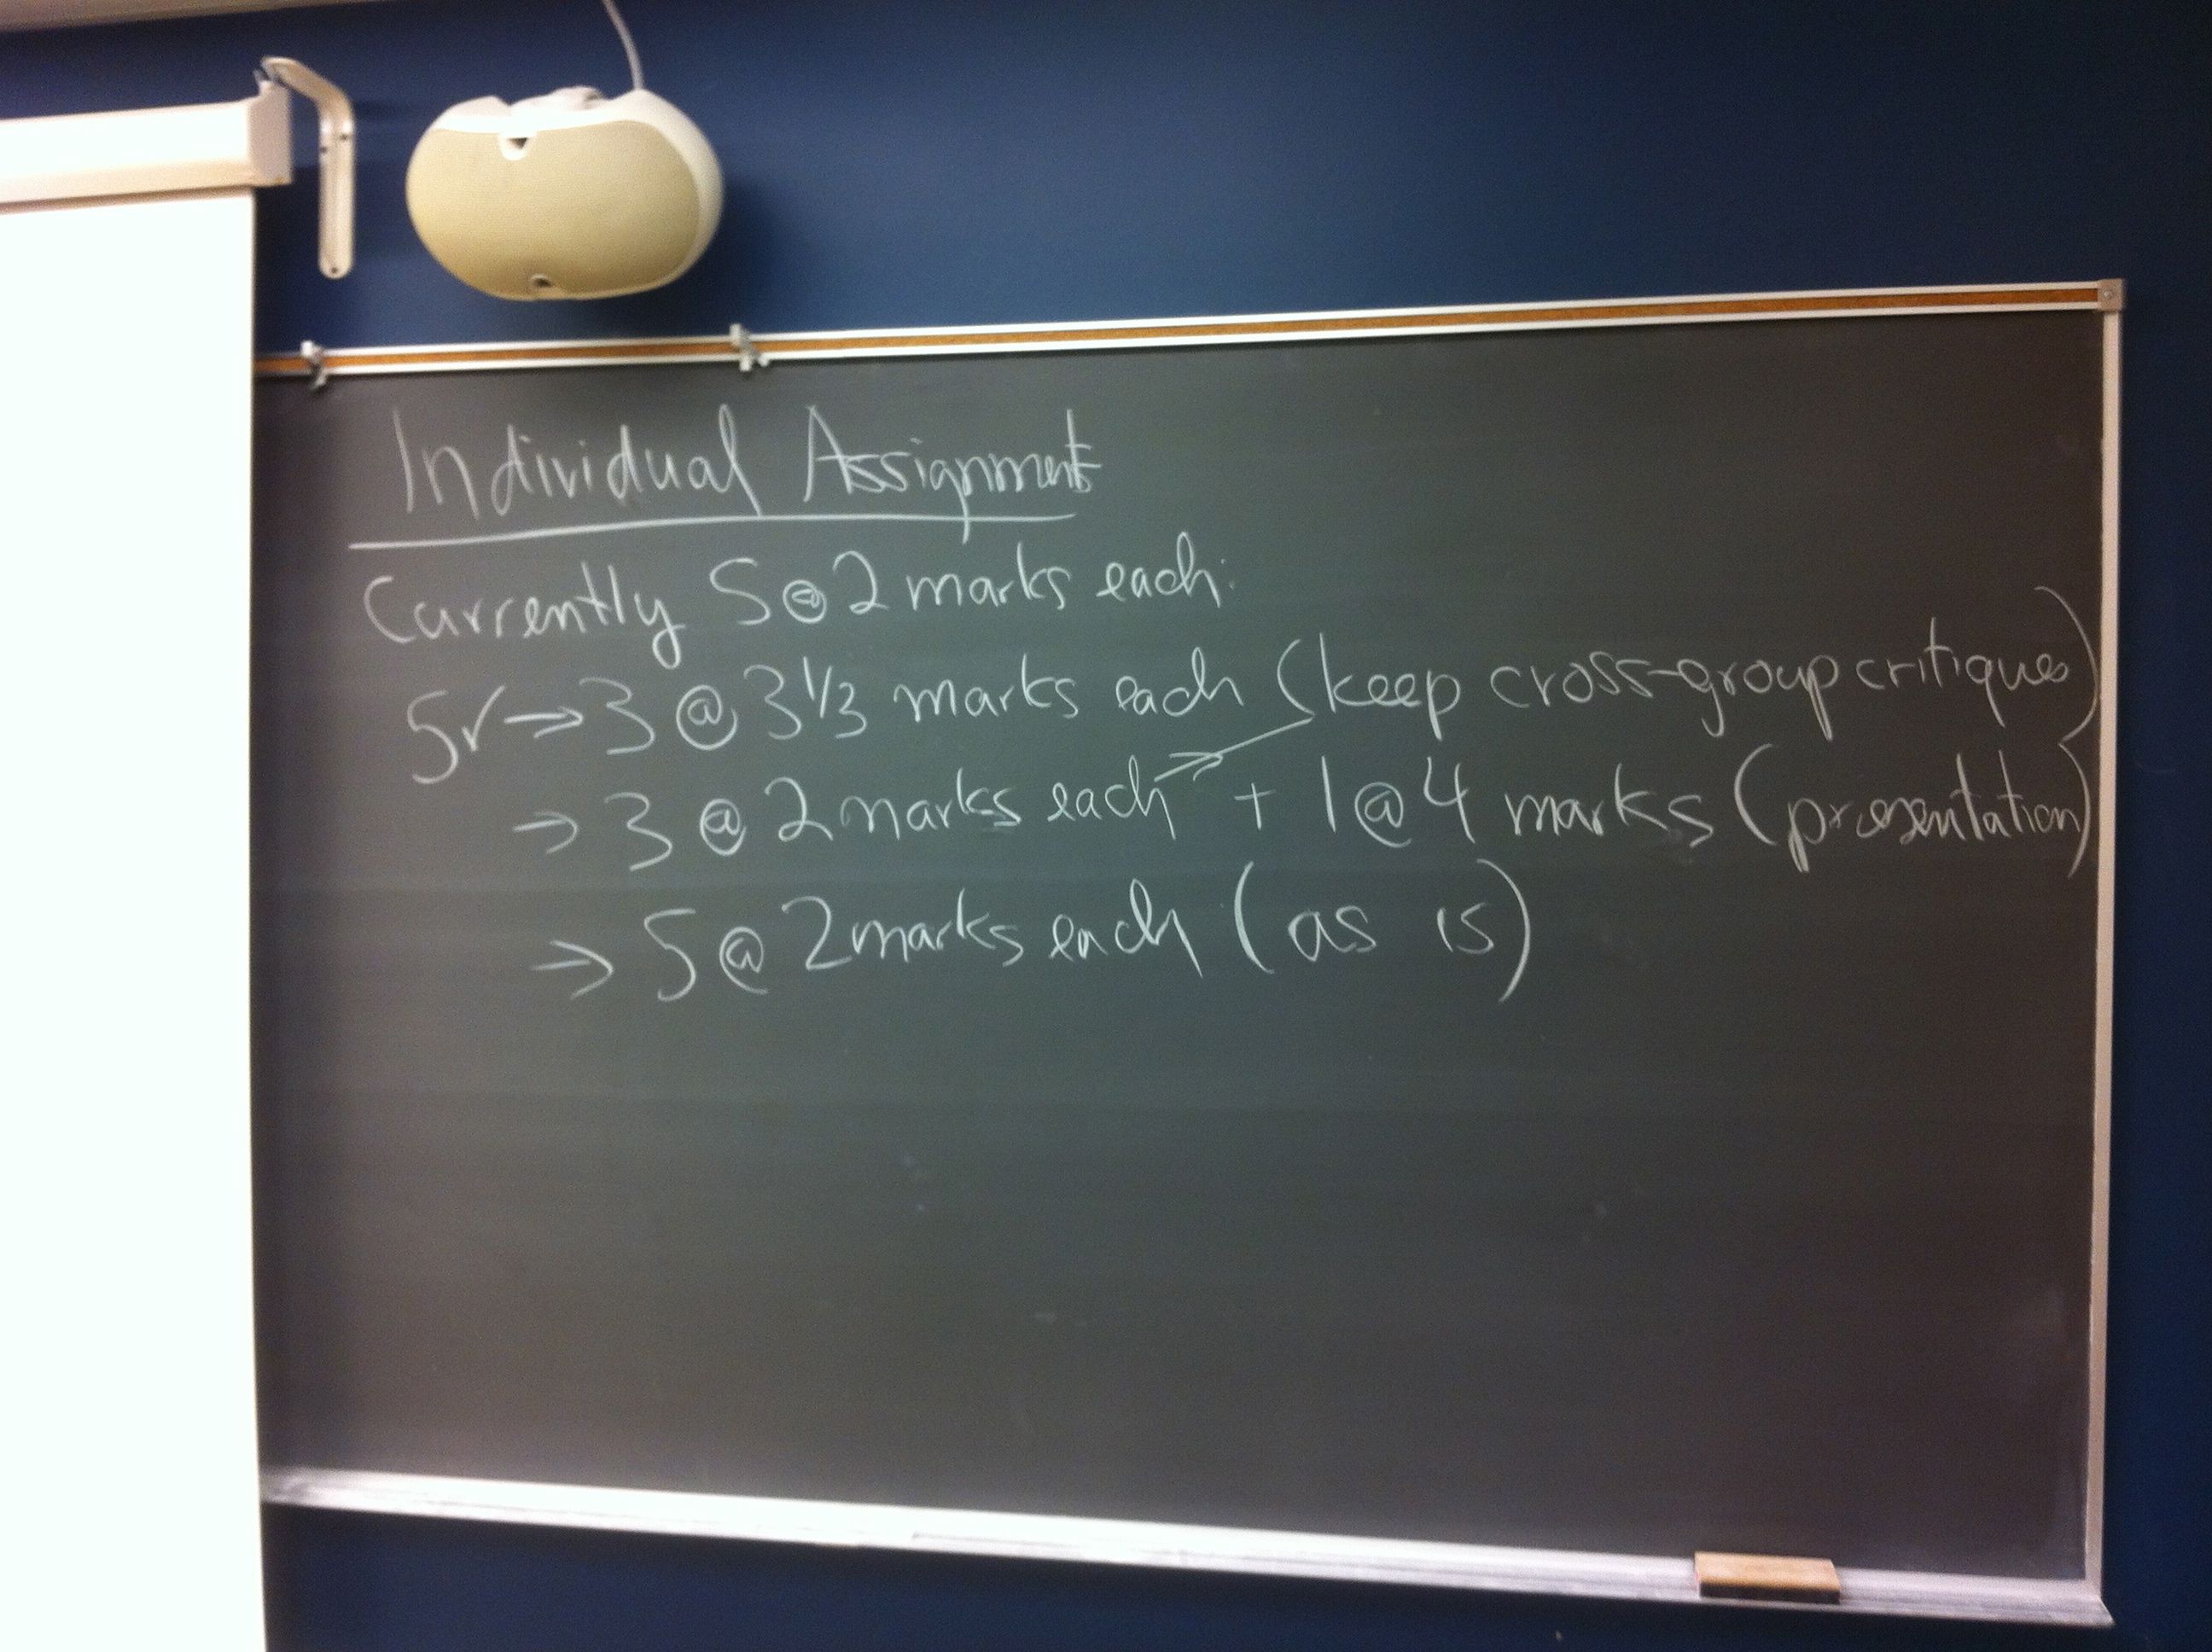 Individual Assignments
Currently 5@2 marks each:
5✓→3 @ 3 1/3 marks each (keep cross-group critiques)
→ 3 @ 2 marks each + 1@4 marks (presentation)
→ 5@ 2 marks each (as is)